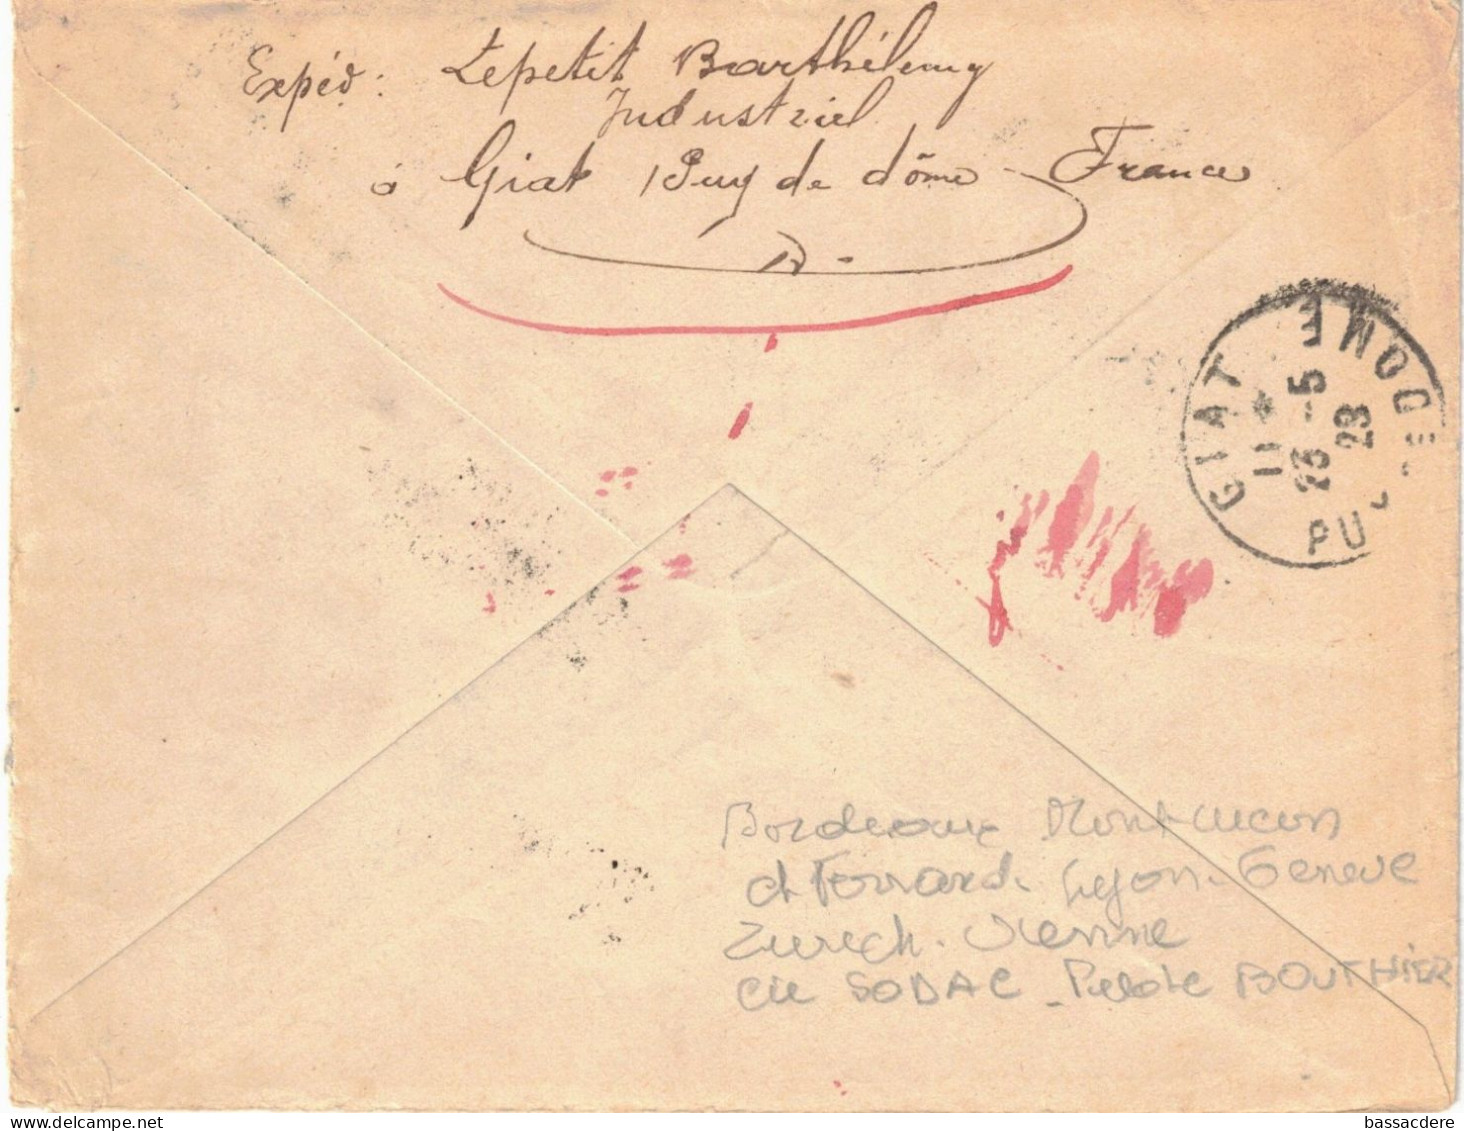 Expéd : Lepetit Barthélemy
Industriel
à Giat Puy de dôme - France
GIAT
PUY-DE-DOME
11 *
23 - 5
29
Bordeaux Montlucon
cl Ferrand. Lyon. Geneve
Zurich. Vienne
cie SODAC - Pilote BOUTHIER
www.delcampe.net
bassacdere